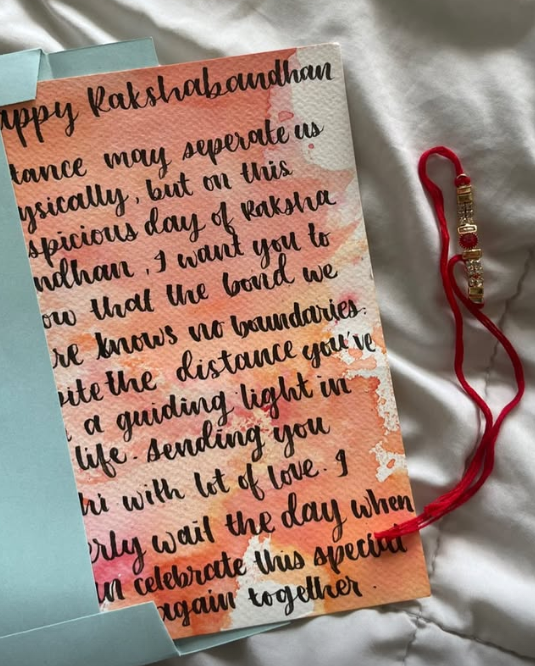 appy Rakshabandhan
tance may seperate us
ysically, but on this
spicious day of Raksha
ndhan, I want you to
ow that the bond we
re knows no boundaries.
ite the distance you've
a guiding light in
life. Sending you
hi with lot of love. I
erly wait the day when
an celebrate this special
again together.